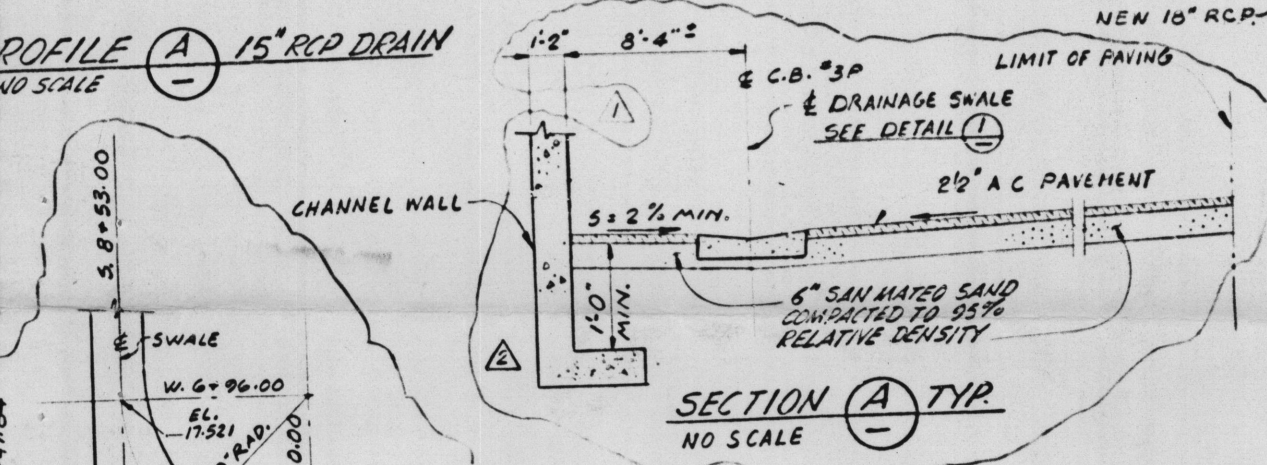 ROFILE A 15" RCP DRAIN
NO SCALE
1'-2"
8'-4"±
NEW 18" RCP
LIMIT OF PAVING
℄ C.B. #3P
℄ DRAINAGE SWALE
SEE DETAIL 1
1
2½" A C PAVEMENT
CHANNEL WALL
S = 2% MIN.
1'-0"
MIN.
6" SAN MATEO SAND
COMPACTED TO 95%
RELATIVE DENSITY
2
SECTION A TYP.
NO SCALE
S. 8+53.00
℄ SWALE
W. 6+96.00
EL.
17.521
RAD.
0.00